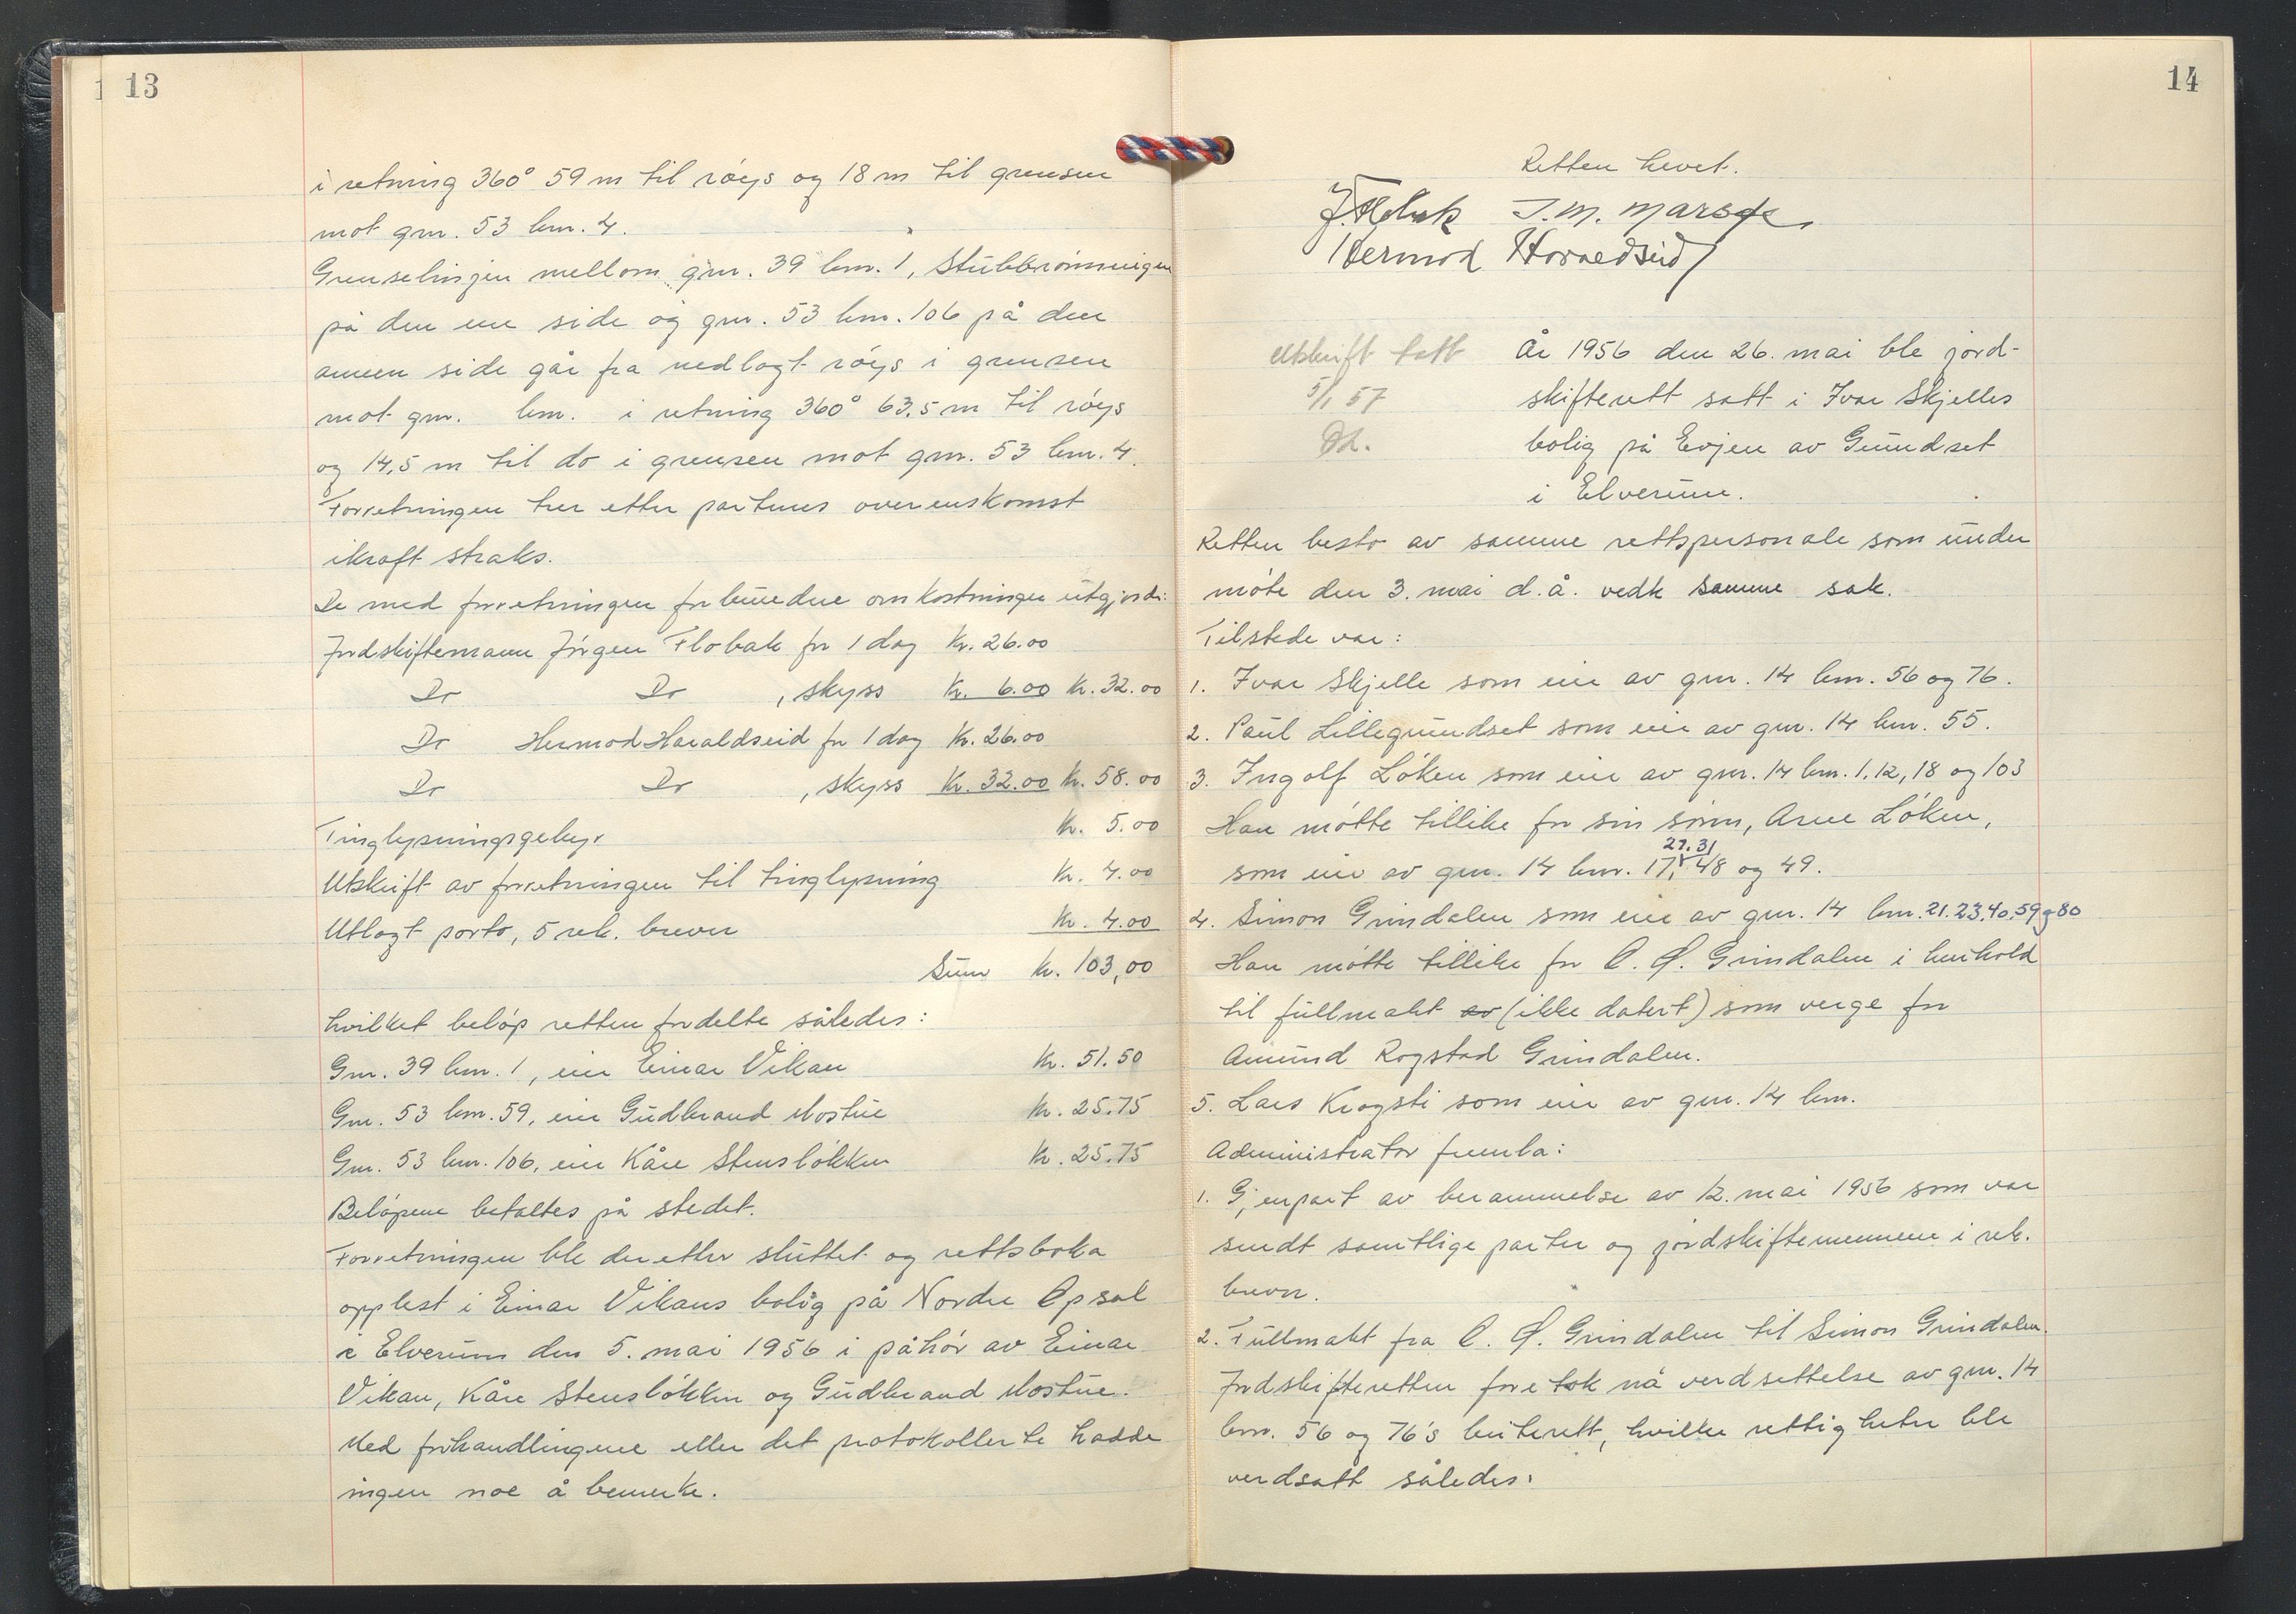 13
i retning 360° 59 m til röys og 18 m til grensen
mot gnr. 53 bnr. 4.
Grenselinjen mellom gnr. 39 bnr. 1, Stubbrönningen
på den ene side og gnr. 53 bnr. 106 på den
annen side går fra nedlagt röys i grensen
mot gnr. bnr. i retning 360° 63,5 m til röys
og 14,5 m til do i grensen mot gnr. 53 bnr. 4.
Forretningen trer etter partenes overenskomst
ikraft straks.
De med forretningen forbundne omkostninger utgjorde:
Jordskiftemann Jörgen Flobak for 1 dag Kr. 26.00
Do Do , skyss Kr. 6.00 Kr. 32.00
Do Hermod Haraldseid for 1 dag Kr. 26.00
Do Do , skyss Kr. 32.00 Kr. 58.00
Tinglysningsgebyr Kr. 5.00
Utskrift av forretningen til tinglysning Kr. 4.00
Utlagt porto, 5 rek. brever Kr. 4.00
Sum Kr. 103,00
hvilket belöp retten fordelte således:
Gnr. 39 bnr. 1, eier Einar Vikan Kr. 51.50
Gnr. 53 bnr. 59, eier Gudbrand Mostue Kr. 25.75
Gnr. 53 bnr. 106, eier Kåre Stenslökken Kr. 25.75
Belöpene betaltes på stedet.
Forretningen ble deretter sluttet og rettsboka
opplest i Einar Vikans bolig på Nordre Opsal
i Elverum den 5. mai 1956 i påhör av Einar
Vikan, Kåre Stenslökken og Gudbrand Mostue.
Med forhandlingene eller det protokollerte hadde
ingen noe å bemerke.
14
Retten hevet.
J. M. Marsge
Hermod
Utskrift tatt
5/1 57
År 1956 den 26. mai ble jord-
skifterett satt i Ivar Skjelles
bolig på Evjen av Gründset
i Elverum.
Retten besto av samme rettspersonale som under
möte den 3. mai d.å. vedk samme sak.
Tilstede var:
1. Ivar Skjelle som eier av gnr. 14 bnr. 56 og 76.
2. Paul Lillegrundset som eier av gnr. 14 bnr. 55.
3. Ingolf Löken som eier av gnr. 14 bnr. 1, 12, 18 og 103
Han mötte tillike for sin sönn, Arne Löken,
27. 31
som eier av gnr. 14 bnr. 17, 48 og 49.
4. Simon Grindalen som eier av gnr. 14 bnr. 21. 23. 40. 59 og 80
Han mötte tillike for O. Ø. Grindalen i henhold
til fullmakt av (ikke datert) som verge for
Amund Rogstad Grindalen.
5. Lars Krogsti som eier av gnr. 14 bnr.
Administrator fremla:
1. Gjenpart av berammelse av 12. mai 1956 som var
sendt samtlige parter og jordskiftemennene i rek.
brever.
2. Fullmakt fra O. Ø. Grindalen til Simon Grindalen.
Jordskifteretten foretok nå verdsettelse av gnr. 14
bnr. 56 og 76's beiterett, hvilke rettigheter ble
verdsatt således: